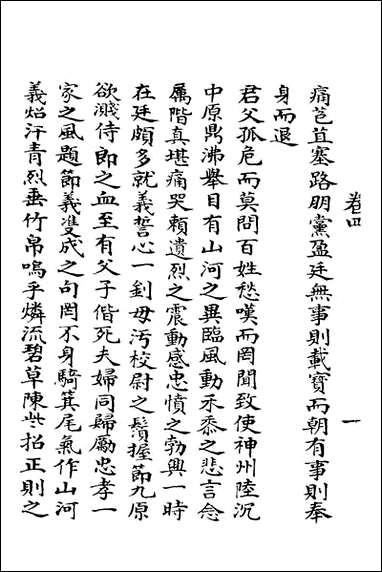 卷四 一
痛苞苴塞路朋黨盈廷無事則載寶而朝有事則奉
身而退
君父孤危而莫問百姓愁嘆而罔聞致使神州陸沉
中原鼎沸舉目有山河之異臨風動禾黍之悲言念
厲階真堪痛哭賴遺烈之震動感忠憤之勃興一時
在廷頗多就義誓心一劍毋汚校尉之鬚握節九原
欲濺侍郎之血至有父子偕死夫婦同歸勵忠孝一
家之風題節義雙成之句罔不身騎箕尾氣作山河
義炤汗青烈垂竹帛嗚乎燐流碧草陳㱔招正則之